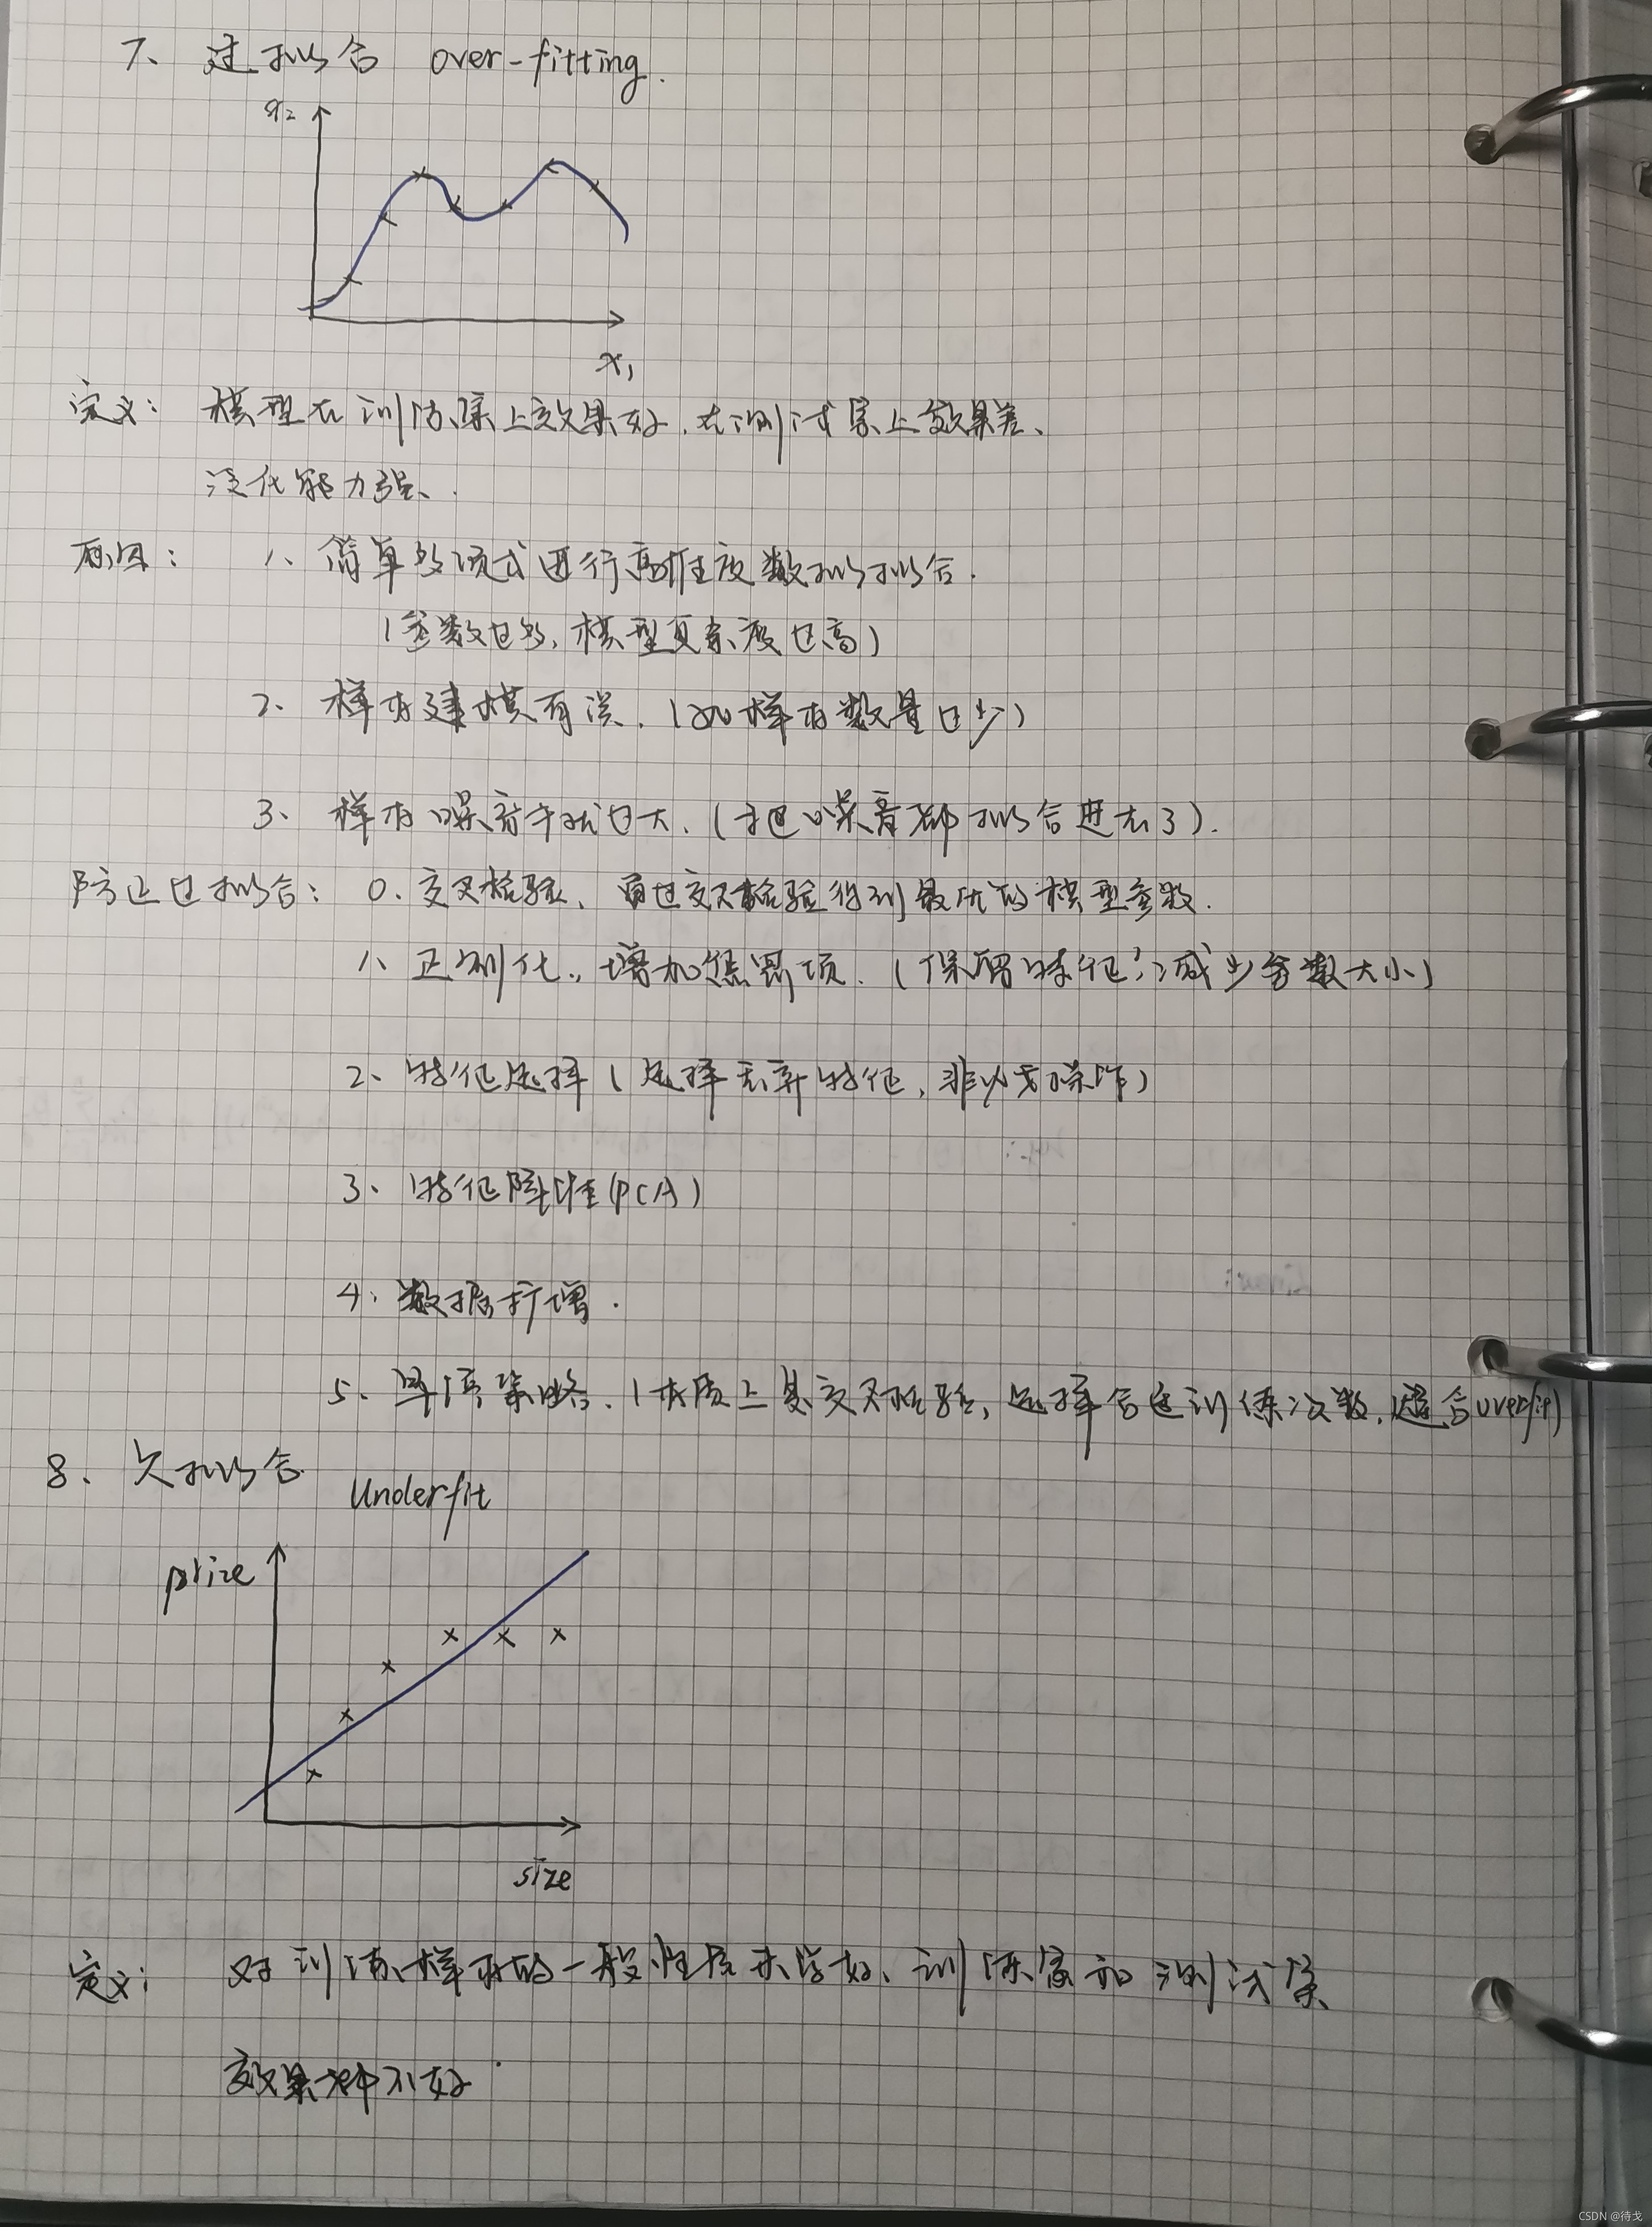 7、过拟合 over-fitting.
x₂
x₁
定义: 模型在训练集上效果好,在测试集上效果差、
泛化能力强、.
原因: 1、简单多项式进行高维度数拟拟合.
(参数过多,模型复杂度过高)
2、样本建模有误.(如样本数量过少)
3、样本噪音干扰过大.(把噪音都拟合进去了).
防止过拟合: 0.交叉检验、通过交叉检验得到最优的模型参数.
1、正则化.,增加惩罚项.(保留特征;减少参数大小)
2、特征选择(选择丢弃特征,非必要操作)
3、特征降维(PCA)
4.数据扩增.
5、早停策略.(本质上是交叉检验,选择合适训练次数.避合overfit)
8、欠拟合 underfit
price
size
定义: 对训练样本的一般性质未学好、训练集和测试集
效果都不好.
CSDN @待戈